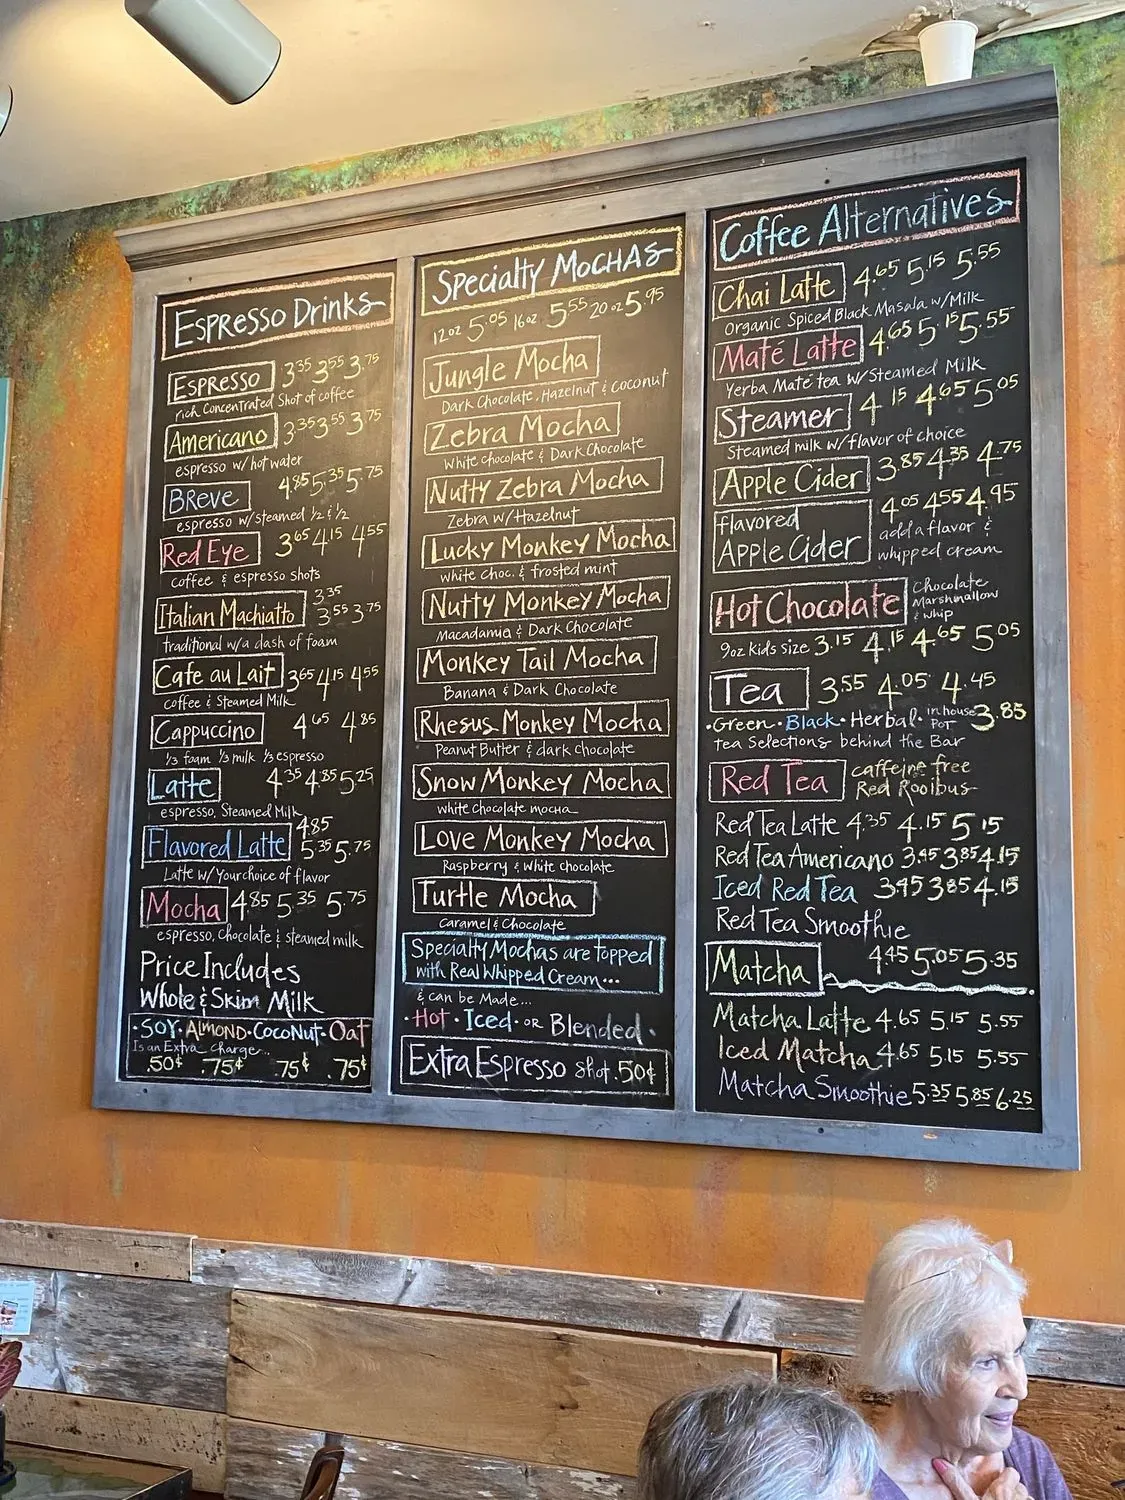 Espresso Drinks
Espresso 3.35 3.55 3.75
rich concentrated shot of coffee
Americano 3.35 3.55 3.75
espresso w/ hot water
Breve 4.85 5.35 5.75
espresso w/steamed ½ & ½
Red Eye 3.65 4.15 4.55
coffee & espresso shots
Italian Machiatto 3.35 3.55 3.75
traditional w/a dash of foam
Cafe au Lait 3.65 4.15 4.55
coffee & Steamed Milk
Cappuccino 4.65 4.85
⅓ foam ⅓ milk ⅓ espresso
Latte 4.35 4.85 5.25
espresso, Steamed Milk
Flavored Latte 4.85 5.35 5.75
Latte w/ Your choice of flavor
Mocha 4.85 5.35 5.75
espresso, Chocolate & steamed milk
Price Includes
Whole & Skim Milk
•Soy•Almond•Coconut•Oat
Is an Extra Charge...
.50¢ .75¢ .75¢ .75¢
Specialty Mochas
12oz 5.05 16oz 5.55 20oz 5.95
Jungle Mocha
Dark Chocolate, Hazelnut & coconut
Zebra Mocha
White chocolate & Dark Chocolate
Nutty Zebra Mocha
Zebra w/Hazelnut
Lucky Monkey Mocha
white choc. & frosted mint
Nutty Monkey Mocha
Macadamia & Dark Chocolate
Monkey Tail Mocha
Banana & Dark Chocolate
Rhesus Monkey Mocha
Peanut Butter & dark Chocolate
Snow Monkey Mocha
white Chocolate mocha
Love Monkey Mocha
Raspberry & white chocolate
Turtle Mocha
Caramel & Chocolate
Specialty Mochas are topped
with Real Whipped Cream...
& can be Made...
•Hot•Iced•or Blended•
Extra Espresso shot .50¢
Coffee Alternatives
Chai Latte 4.65 5.15 5.55
Organic Spiced Black Masala w/Milk
Maté Latte 4.65 5.15 5.55
Yerba Maté tea w/ Steamed Milk
Steamer 4.15 4.65 5.05
Steamed milk w/flavor of choice
Apple Cider 3.85 4.35 4.75
flavored
Apple Cider 4.05 4.55 4.95
add a flavor &
whipped cream
Hot Chocolate Chocolate
Marshmallow
& whip
9oz Kids Size 3.15 4.15 4.65 5.05
Tea 3.55 4.05 4.45
•Green•Black•Herbal• in house Pot 3.85
tea Selections behind the Bar
Red Tea caffeine free
Red Rooibus
Red Tea Latte 4.35 4.15 5.15
Red Tea Americano 3.45 3.85 4.15
Iced Red Tea 3.45 3.85 4.15
Red Tea Smoothie
4.45 5.05 5.35
Matcha
Matcha Latte 4.65 5.15 5.55
Iced Matcha 4.65 5.15 5.55
Matcha Smoothie 5.35 5.85 6.25